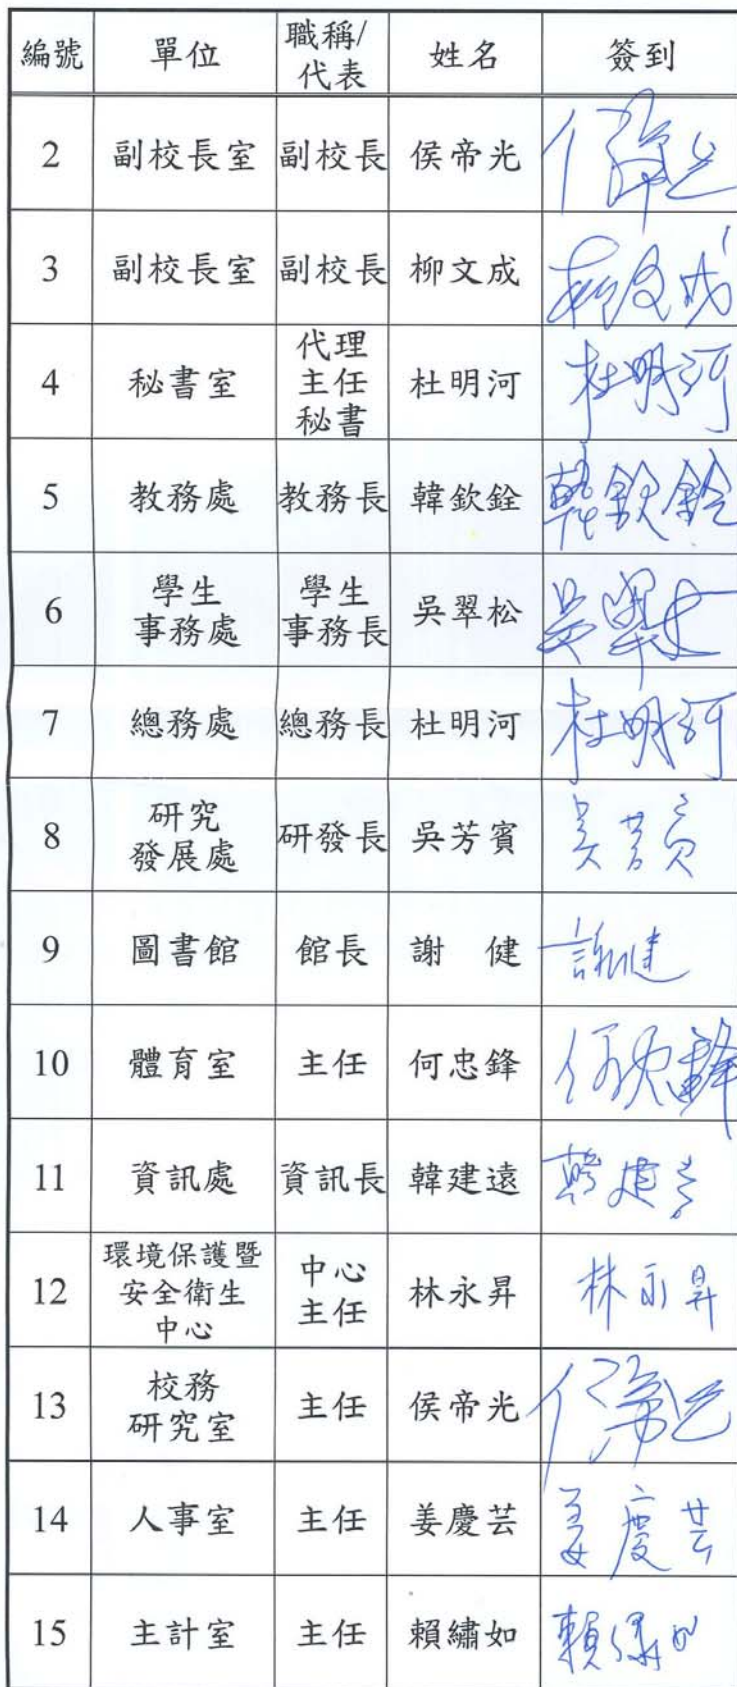 編號 單位 職稱/代表 姓名 簽到
2 副校長室 副校長 侯帝光 侯帝光
3 副校長室 副校長 柳文成 柳文成
4 秘書室 代理主任秘書 杜明河 杜明河
5 教務處 教務長 韓欽銓 韓欽銓
6 學生事務處 學生事務長 吳翠松 吳翠松
7 總務處 總務長 杜明河 杜明河
8 研究發展處 研發長 吳芳賓 吳芳賓
9 圖書館 館長 謝 健 謝健
10 體育室 主任 何忠鋒 何忠鋒
11 資訊處 資訊長 韓建遠 韓建遠
12 環境保護暨安全衛生中心 中心主任 林永昇 林永昇
13 校務研究室 主任 侯帝光 侯帝光
14 人事室 主任 姜慶芸 姜慶芸
15 主計室 主任 賴繡如 賴繡如